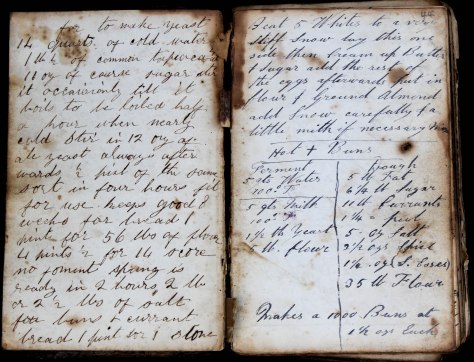 for to make yeast
14 quarts of cold water
1 lb of common
11 oz of course sugar
it occasionly till it
boils to be boiled half
a hour when nearly
cold Stir in 12 oz of
ale yeast always after
wards 2 pint of the same
sort in four hours fit
for use keeps good 8
weeks for bread 1
pint for 56 lbs of flour
4 pints for 14 score
no foment spung is
ready in 2 hours 2 lb
or 2 lbs of salt
for buns & currant
bread 1 pint for 1 stone
Beat 5 Whites to a very
Stiff Snow lay this one
side then Cream up Butter
& Sugar add the rest of
the eggs afterwards put in
flour & Ground Almond
add Snow carefully & a
little milk if necessary
Hot + Buns
Ferment
5 Water
100° F
5 Milk
100° F
1½ lb Yeast
5 lb flour
Dough
5 lb Fat
6¼ lb Sugar
11 lb Currants
1¼ Peel
5 oz Salt
3½ oz Spice
1½ oz
35 lb Flour
Makes a 1000 Buns at
1½ oz Each